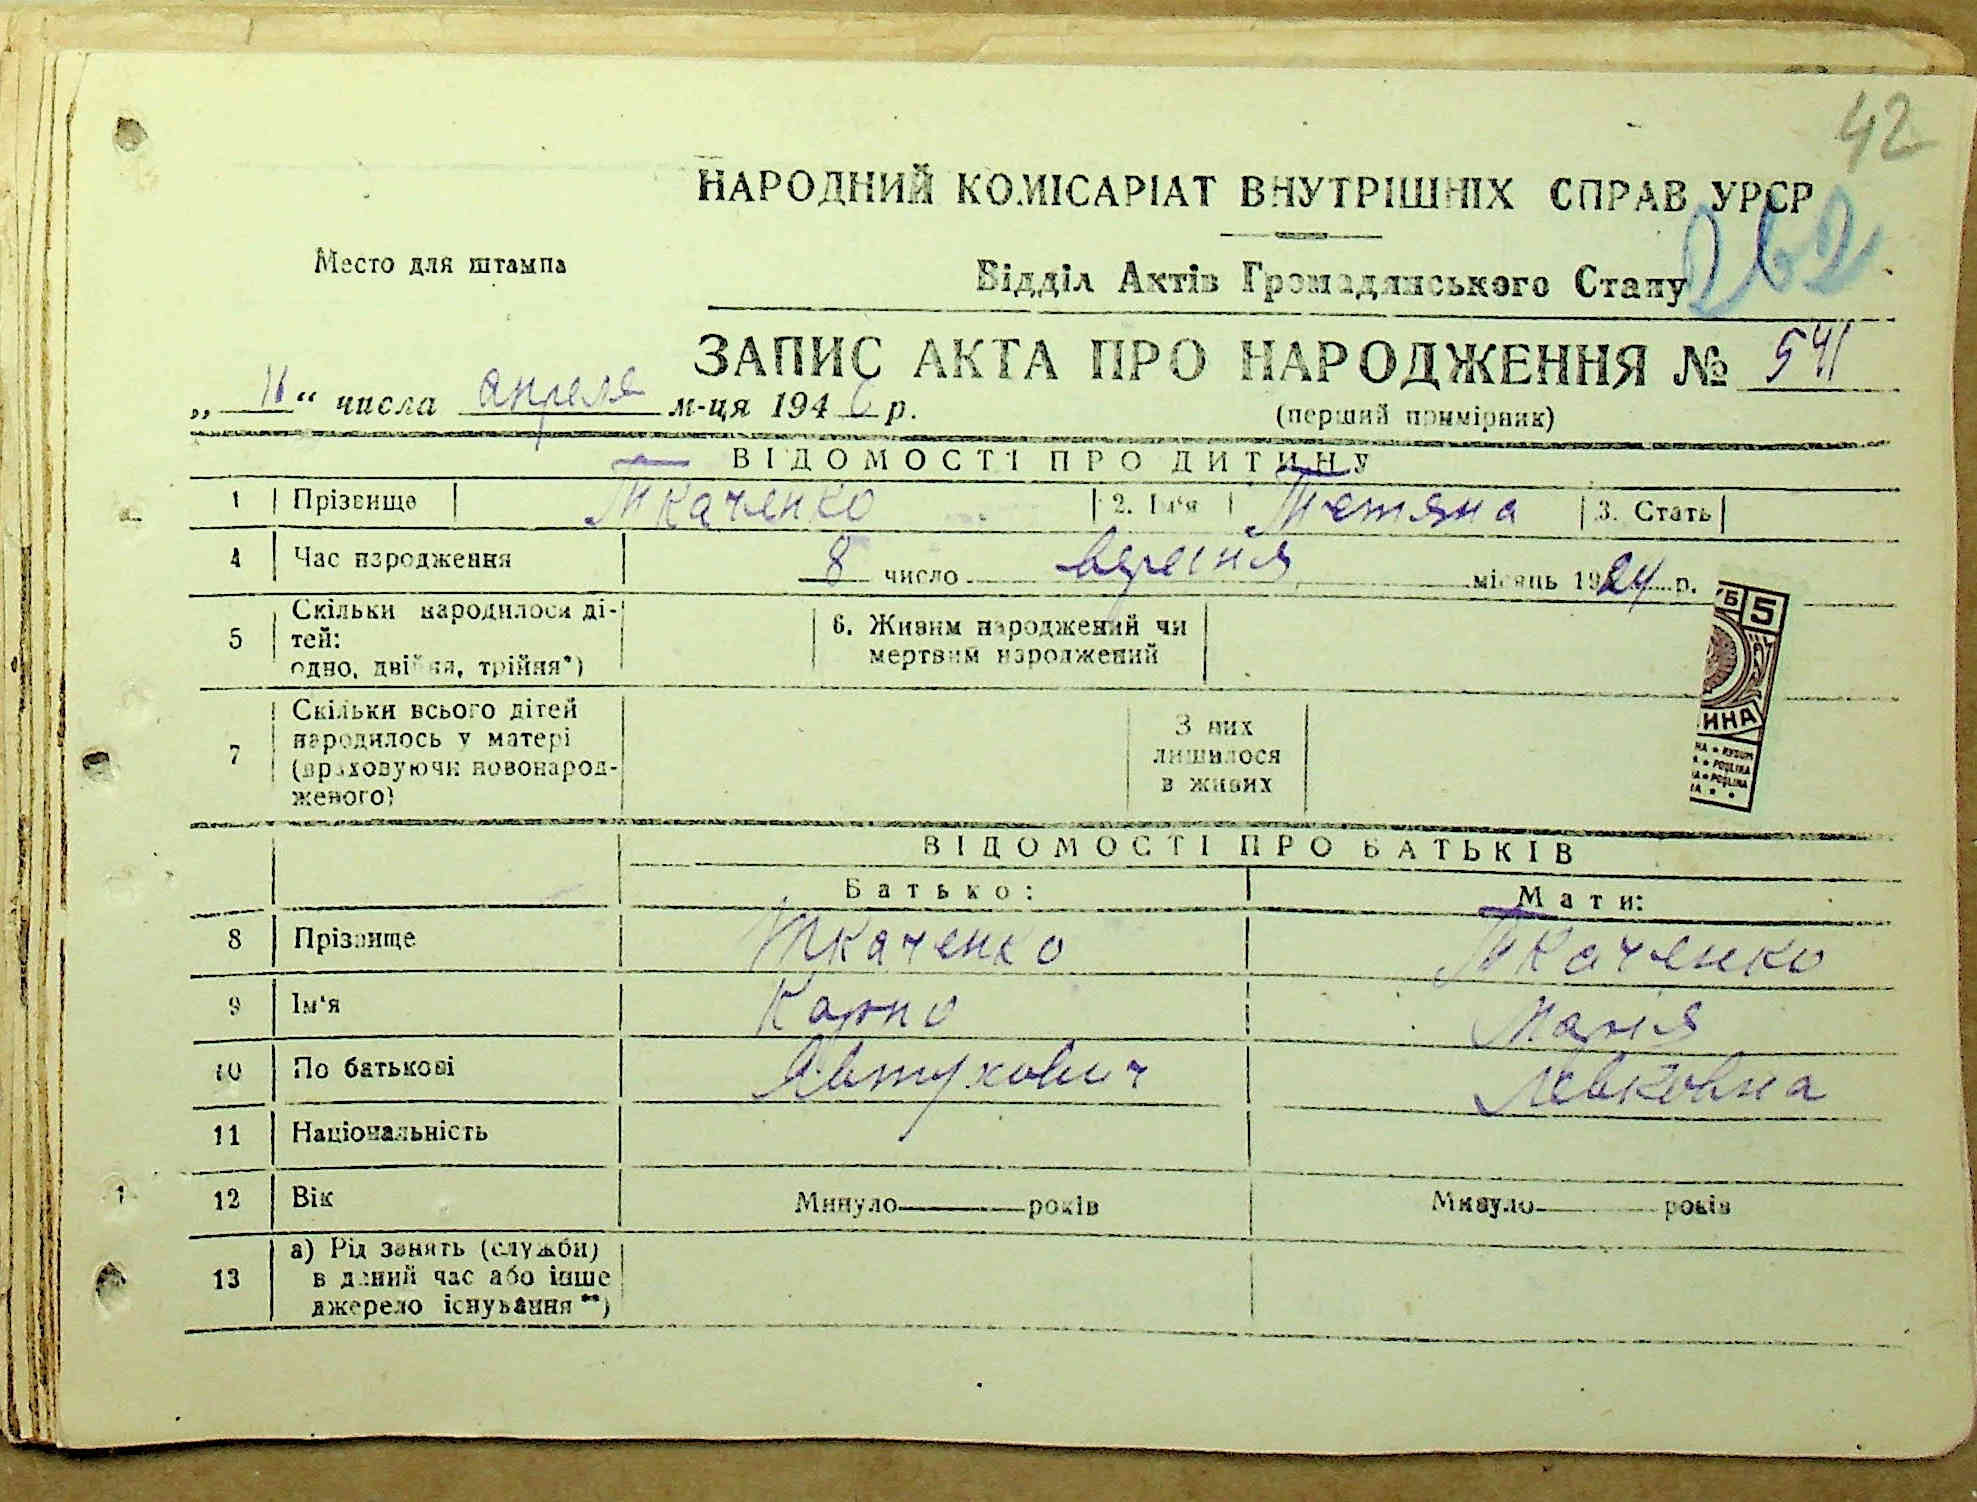 42
НАРОДНИЙ КОМІСАРІАТ ВНУТРІШНІХ СПРАВ УРСР
262
Место для штампа
Відділ Актів Громадянського Стану
ЗАПИС АКТА ПРО НАРОДЖЕННЯ № 541
„ 11 “ числа апреля м-ця 1946 р.
(перший примірник)
ВІДОМОСТІ ПРО ДИТИНУ
1 Прізвище Ткаченко 2. Ім'я Тетяна 3. Стать
4 Час народження 8 число вересня місяць 1924 р.
5 Скільки народилося ді-
тей:
одно, двійня, трійня*)
6. Живим народжений чи
мертвим народжений
7 Скільки всього дітей
народилось у матері
(враховуючи новонарод-
женого)
З них
лишилося
в живих
5
ИНА
ВІДОМОСТІ ПРО БАТЬКІВ
Батько: Мати:
8 Прізвище Ткаченко Ткаченко
9 Ім'я Карпо Марія
10 По батькові Явтухович Левковна
11 Національність
12 Вік Минуло років Минуло років
13 а) Рід занять (служби)
в даний час або інше
джерело існування**)